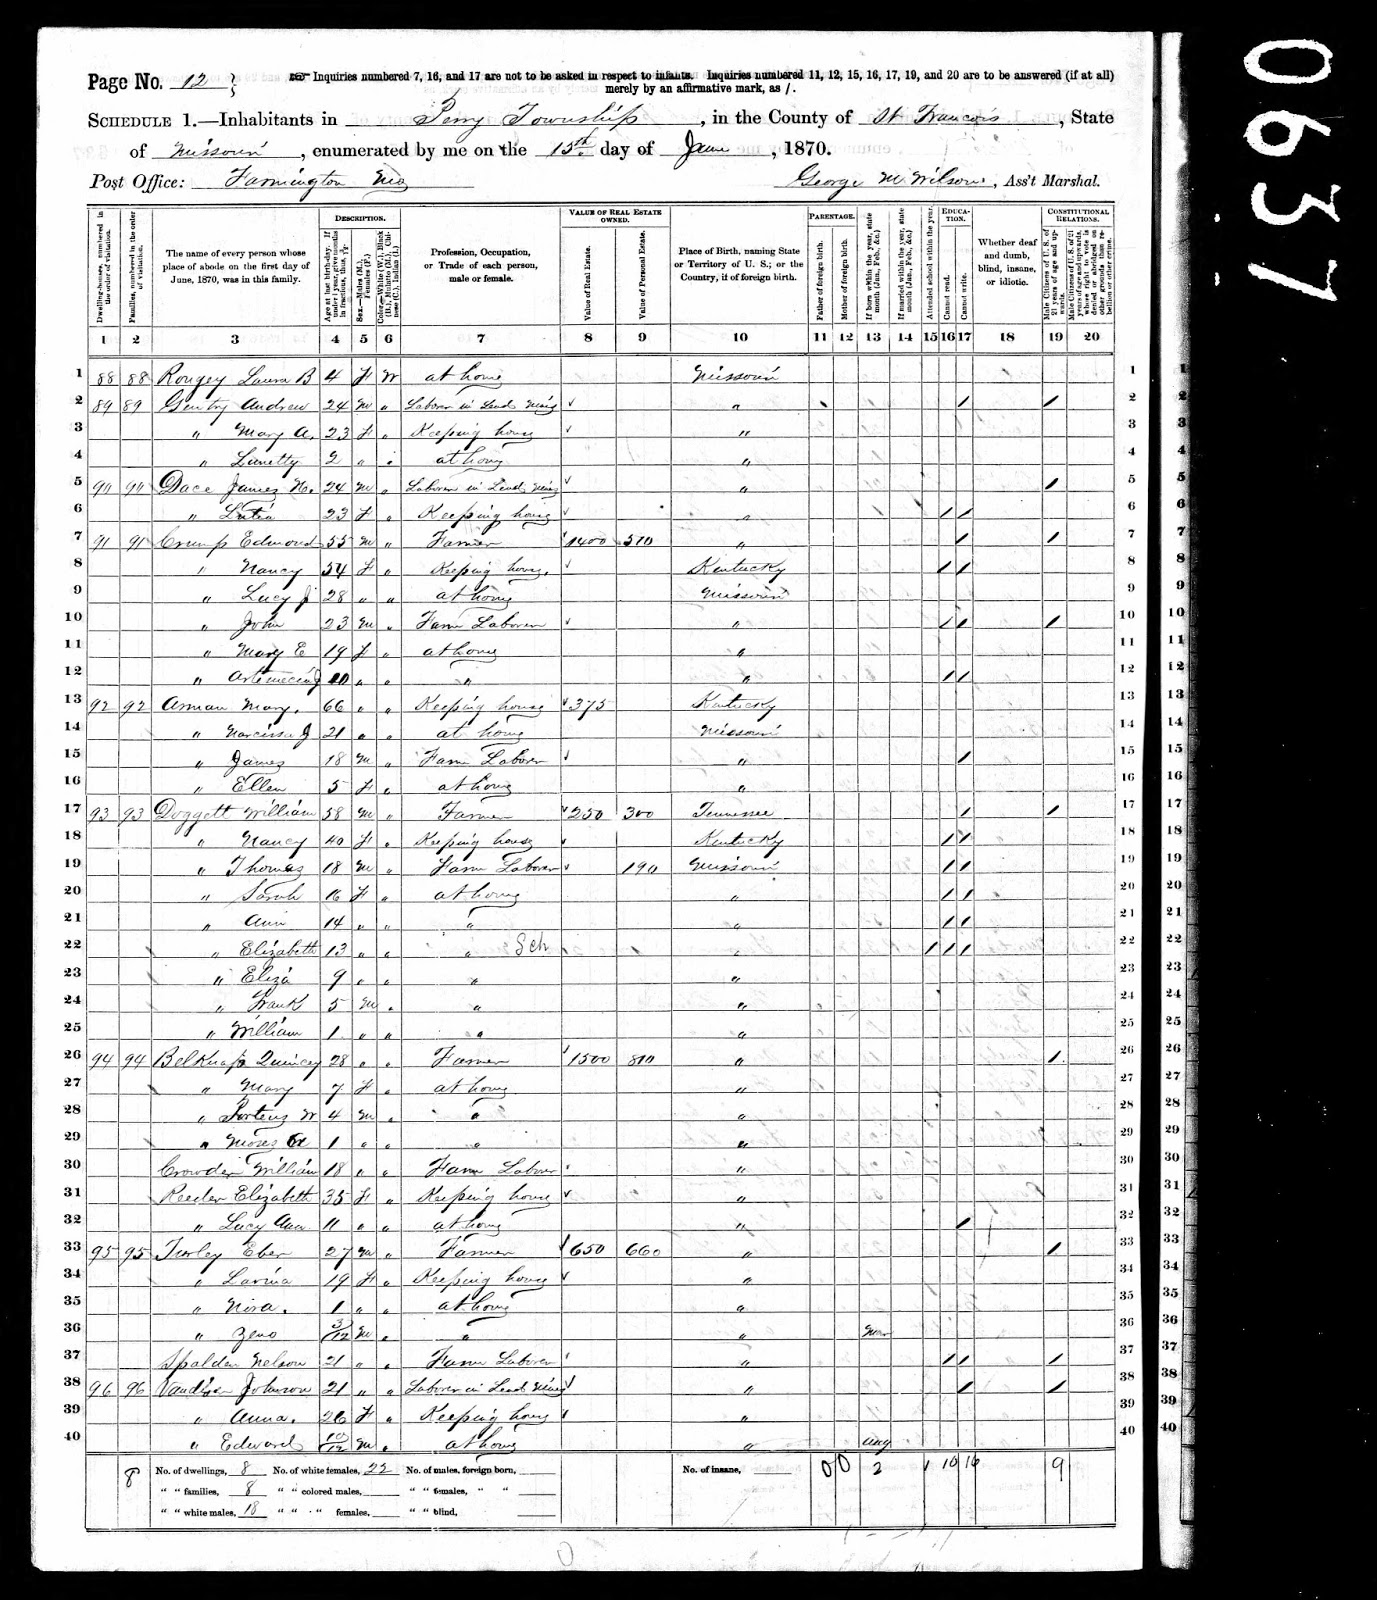 0637
Page No. 12 } Inquiries numbered 7, 16, and 17 are not to be asked in respect to infants. Inquiries numbered 11, 12, 15, 16, 17, 19, and 20 are to be answered (if at all)
merely by an affirmative mark, as /.
SCHEDULE 1.—Inhabitants in Perry Township, in the County of St Francois, State
of Missouri, enumerated by me on the 15th day of June, 1870.
Post Office: Farmington Mo George M. Wilson, Ass't Marshal.
Dwelling-houses, numbered in the order of visitation.
Families, numbered in the order of visitation.
The name of every person whose place of abode on the first day of June, 1870, was in this family.
DESCRIPTION.
Age at last birthday. If under 1 year, give months in fractions, thus, 3/12
Sex.—Males (M.), Females (F.)
Color.—White (W.), Black (B.), Mulatto (M.), Chinese (C.), Indian (I.)
Profession, Occupation, or Trade of each person, male or female.
VALUE OF REAL ESTATE OWNED.
Value of Real Estate.
Value of Personal Estate.
Place of Birth, naming State or Territory of U. S.; or the Country, if of foreign birth.
PARENTAGE.
Father of foreign birth.
Mother of foreign birth.
If born within the year, state month (Jan., Feb., &c.)
If married within the year, state month (Jan., Feb., &c.)
EDUCATION.
Attended school within the year.
Cannot read.
Cannot write.
Whether deaf and dumb, blind, insane, or idiotic.
CONSTITUTIONAL RELATIONS.
Male Citizens of U. S. of 21 years of age and upwards.
Male Citizens of U. S. of 21 years of age and upwards, whose right to vote is denied or abridged on other grounds than rebellion or other crime.
1 2 3 4 5 6 7 8 9 10 11 12 13 14 15 16 17 18 19 20
1 88 88 Rougey Laura B 4 F W at home Missouri 1
2 89 89 Gentry Andrew 24 M " Laborer in Lead Mines " / / 2
3 " Mary A. 23 F " Keeping house " 3
4 " Lunetty 2 " " at home " 4
5 90 90 Dace James H. 24 M " Laborer in Lead Mines " / 5
6 " 23 F " Keeping house " / / 6
7 91 91 Crump Edmond 55 M " Farmer 1400 510 " / / 7
8 " Nancy 54 F " Keeping house Kentucky / / 8
9 " Lucy J 28 " " at home Missouri 9
10 " John 23 M " Farm Laborer " / / / 10
11 " Mary E 19 F " at home " 11
12 " 10 " " " " / / 12
13 92 92 Arman Mary. 66 " " Keeping house 375 Kentucky 13
14 " Narcissa J 21 " " at home Missouri 14
15 " James 18 M " Farm Laborer " / 15
16 " Ellen 5 F " at home " 16
17 93 93 Doggett William 58 M " Farmer 250 300 Tennessee / / 17
18 " Nancy 40 F " Keeping house Kentucky / / 18
19 " Thomas 18 M " Farm Laborer 190 Missouri / / 19
20 " Sarah 16 F " at home " / / 20
21 " Ann 14 " " " " / / 21
22 " Elizabeth 13 " " " Sch " / / / 22
23 " Eliza 9 " " " " 23
24 " Frank 5 M " " " 24
25 " William 1 " " " " 25
26 94 94 Belknap Quincey 28 " " Farmer 1500 810 " / 26
27 " Mary 7 F " at home " 27
28 " Porteus W 4 M " " " 28
29 " Moses 1 " " " " 29
30 Crowder William 18 " " Farm Laborer " 30
31 Reeder Elizabeth 35 F " Keeping house " 31
32 " Lucy Ann 11 " " at home " / 32
33 95 95 Turley Eber 27 M " Farmer 650 660 " / 33
34 " 19 F " Keeping house " 34
35 " Nora. 1 " " at home " 35
36 " Zeno 3/12 M " " " Mar 36
37 Spalden Nelson 21 " " Farm Laborer " / / / 37
38 96 96 Johnson 21 " " Laborer in Lead Mines " / / 38
39 " Anna. 26 F " Keeping house " 39
40 " Edward 10/12 M " at home " Aug 40
8 No. of dwellings, 8 No. of white females, 22 No. of males, foreign born, No. of insane, 0 0 2 1 10 16 9
" " families, 8 " " colored males, " " females, " "
" " white males, 18 " " " females, " " blind,